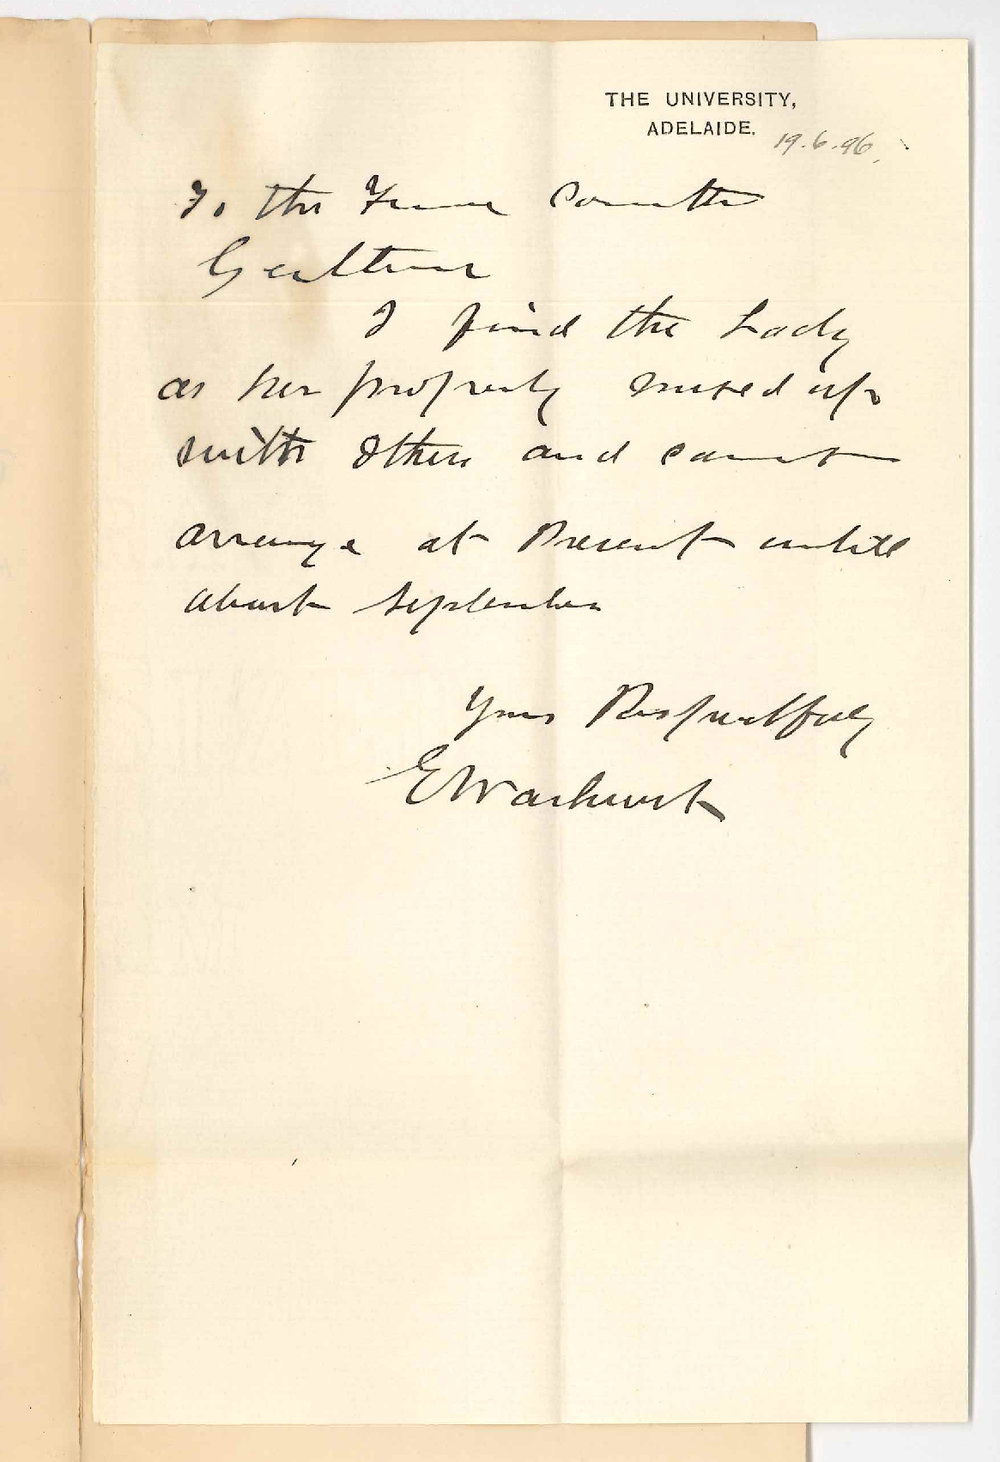 THE UNIVERSITY,
ADELAIDE.
19.6.96.
To the Finance Committee
Gentlemen
I find the Lady
as her property mixed up
with others and cannot
arrange at Present untill
about September
Yours Respectfully
E Warhurst